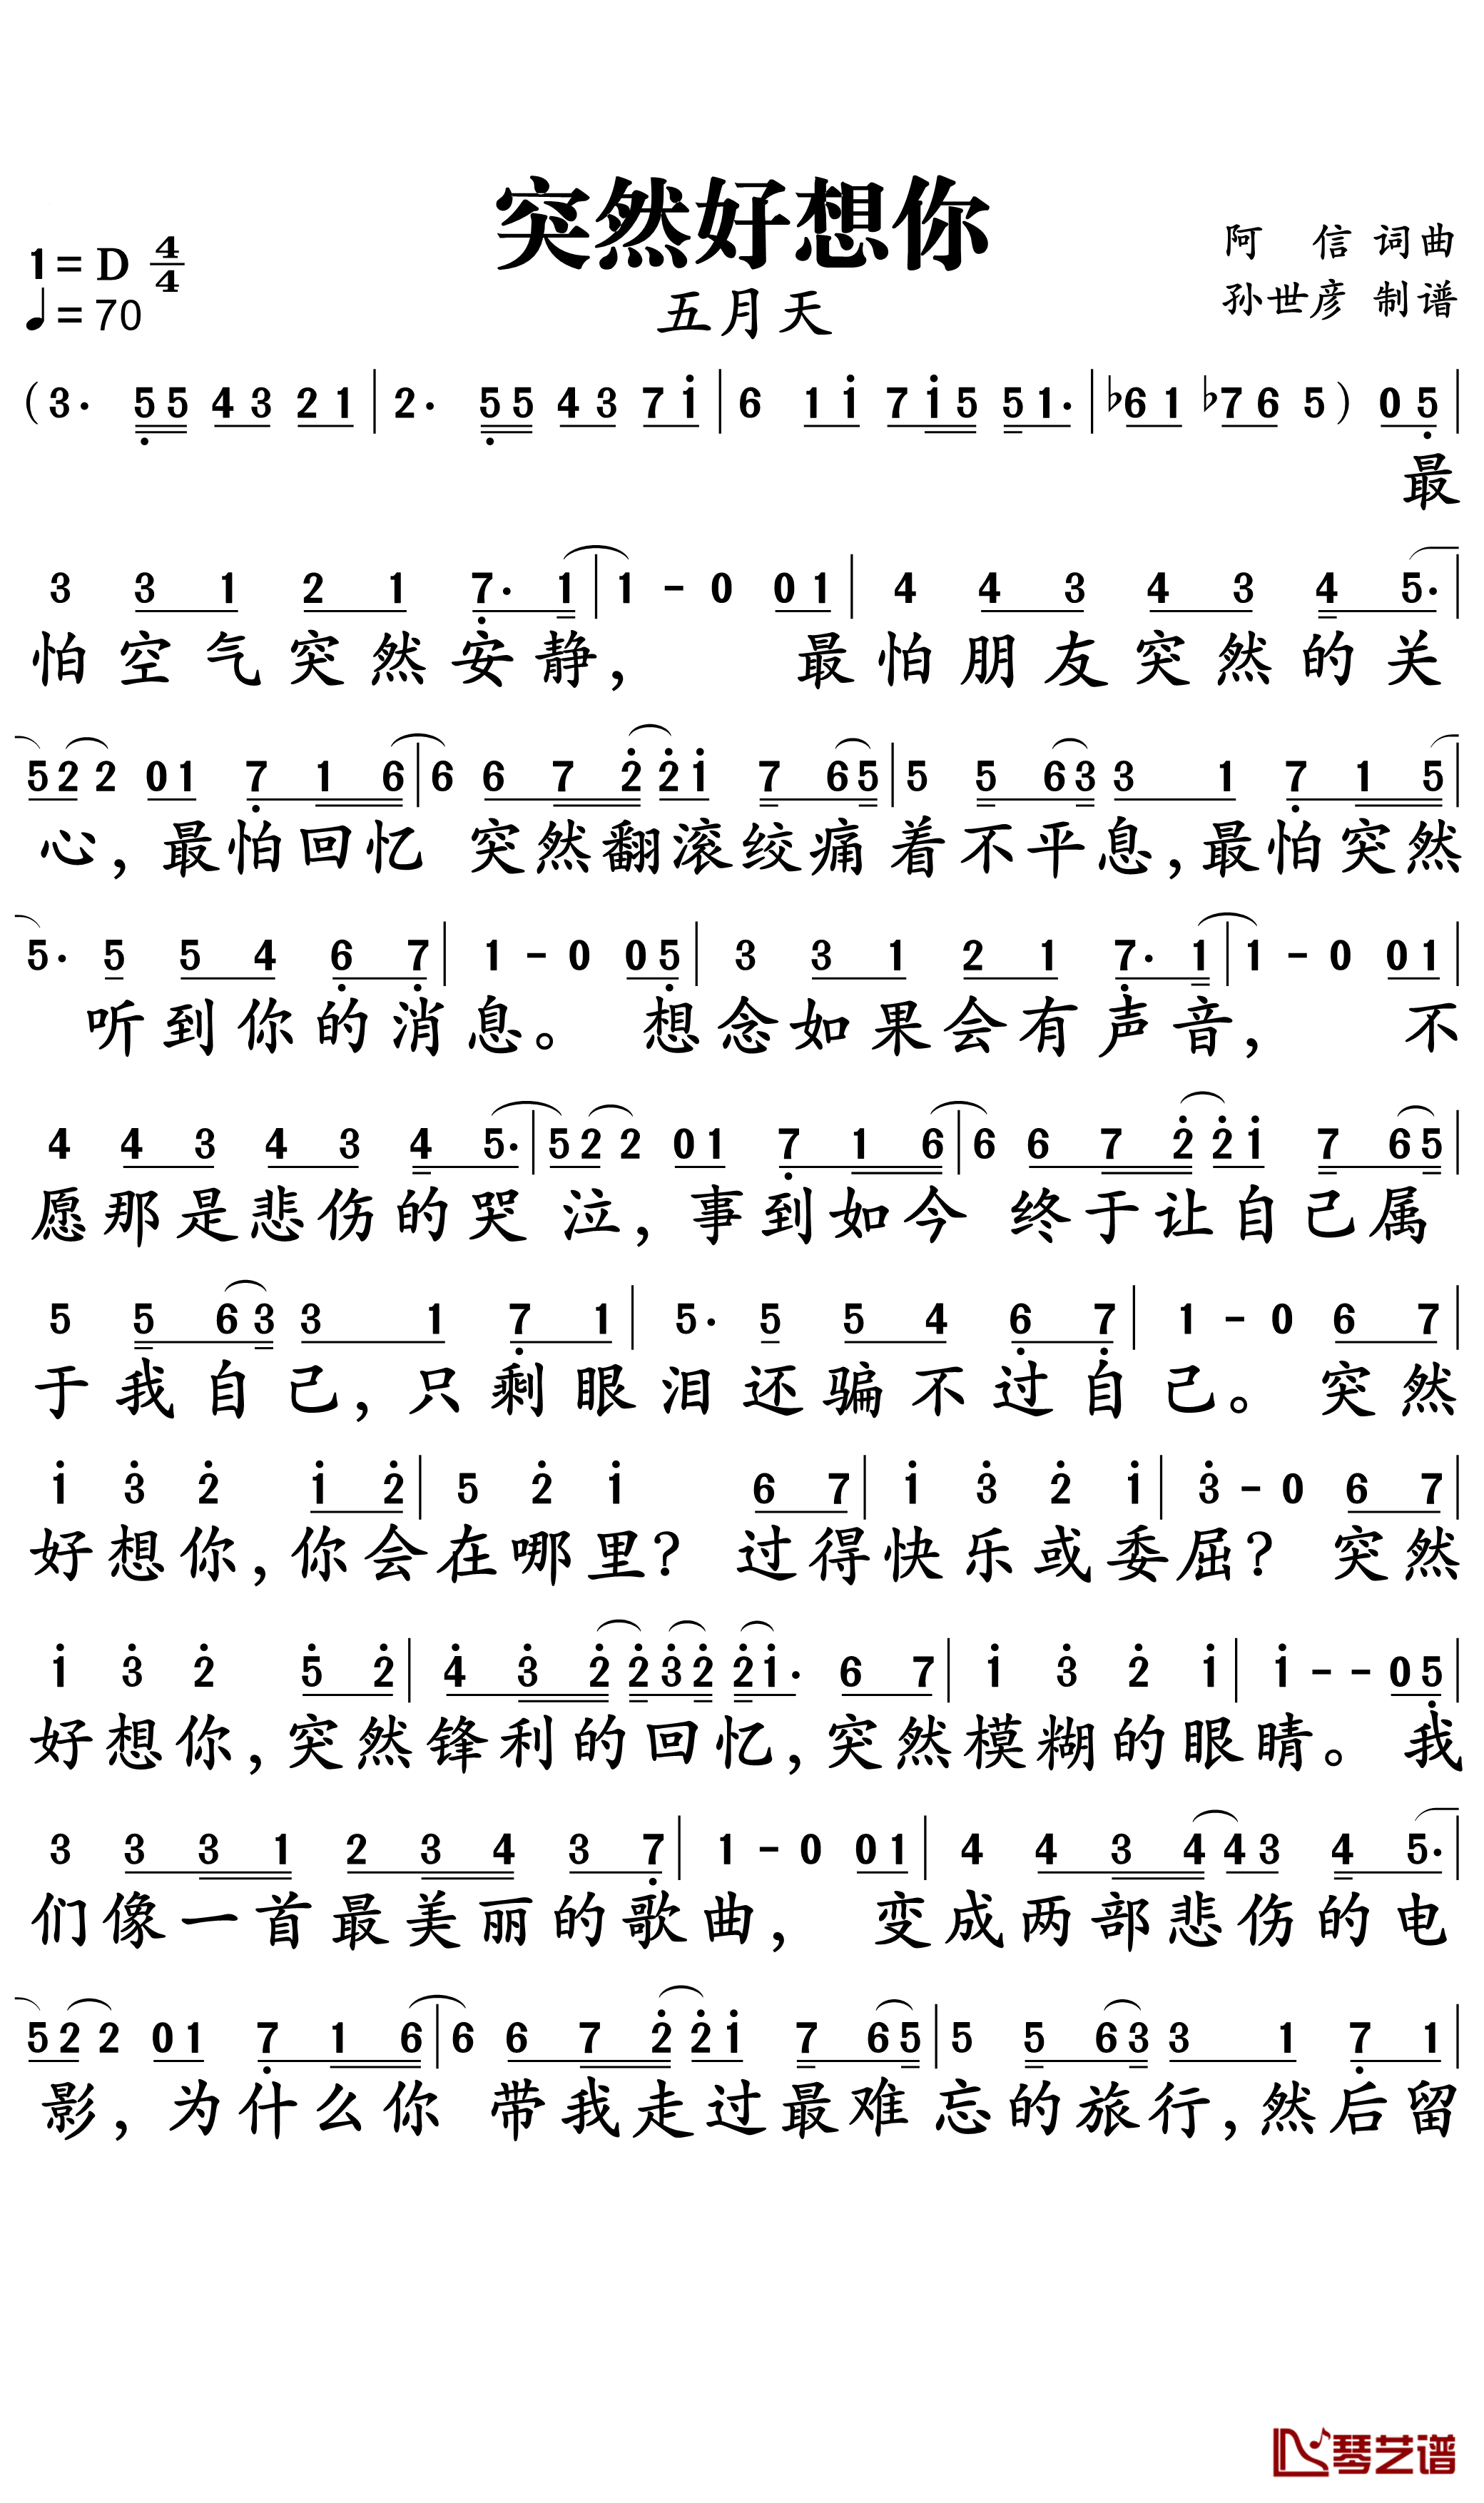 突然好想你
1= D 4/4
阿 信 词曲
♩=70
五月天
孙世彦 制谱
( 3· 5̣5 43 21 | 2· 5̣5 43 7i | 6 1i 7i5 51· | ♭61 ♭76 5 ) 05̣ |
最
3 31 21 7̣·1 | 1 - 0 01 | 4 43 43 45· |
怕空气突然安静, 最怕朋友突然的关
522 01 7̣16 | 6 672̇ 2̇i 765 | 5 563 31 7̣15 |
心, 最怕回忆 突然翻滚绞痛着不平息, 最怕突然
5· 5 54 6̣7̣ | 1 - 0 05̣ | 3 31 21 7̣·1 | 1 - 0 01 |
听到你的消息。 想念如果会有声音, 不
4 43 43 45· | 522 01 7̣16 | 6 672̇ 2̇i 765 |
愿那是悲伤的哭泣, 事到如今 终于让自己属
5 563 31 7̣1 | 5· 5 54 6̣7̣ | 1 - 0 67 |
于我自己, 只剩眼泪还骗不过自己。 突然
i 3̇ 2̇ i2̇ | 5 2̇ i 67 | i 3̇ 2̇ i | 3̇ - 0 67 |
好想你, 你会在哪里? 过得快乐或委屈? 突然
i 3̇ 2̇ 5̇2̇ | 4̇3̇2̇ 2̇3̇2̇ 2̇i· 67 | i 3̇ 2̇ i | i - - 05̣ |
好想你, 突然锋利的回忆, 突然模糊的眼睛。 我
3 331 234 37̣ | 1 - 0 01 | 4 434 43 45· |
们像一首最美丽的歌曲, 变成两部悲伤的电
522 01 7̣16 | 6 672̇ 2̇i 765 | 5 563 31 7̣1 |
影, 为什么你 带我走过最难忘的旅行, 然后留
琴艺谱